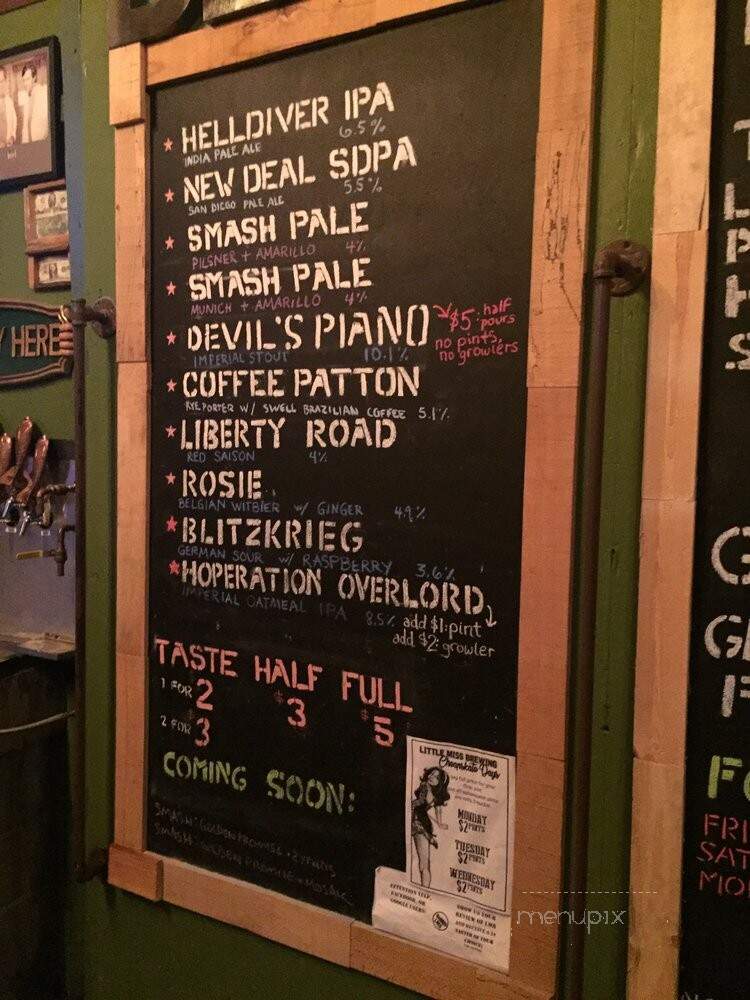 HELLDIVER IPA
INDIA PALE ALE 6.5%
NEW DEAL SDPA
SAN DIEGO PALE ALE 5.5%
SMASH PALE
PILSNER + AMARILLO 4%
SMASH PALE
MUNICH + AMARILLO 4%
DEVIL'S PIANO
IMPERIAL STOUT 10.1%
$5: half
pours
no pints,
no growlers
COFFEE PATTON
RYE PORTER W/ SWELL BRAZILIAN COFFEE 5.1%
LIBERTY ROAD
RED SAISON 4%
ROSIE
BELGIAN WITBIER W/ GINGER 4.9%
BLITZKRIEG
GERMAN SOUR W/ RASPBERRY 3.6%
HOPERATION OVERLORD
IMPERIAL OATMEAL IPA 8.5%
add $1: pint
add $2: growler
TASTE HALF FULL
1 FOR 2 $3 $5
2 FOR 3
COMING SOON:
SMASH: GOLDEN PROMISE +
SMASH: GOLDEN PROMISE + MOSAIC
LITTLE MISS BREWING
Cheapskate Days
MONDAY
$2 PINTS
TUESDAY
$2 PINTS
WEDNESDAY
$2 PINTS
ATTENTION YELP,
FACEBOOK, OR
GOOGLE USERS:
SHOW US YOUR
REVIEW OF LMB
AND RECEIVE A $1
TASTER OF YOUR
CHOICE!
Y HERE
menupix
FRI
SAT
MO